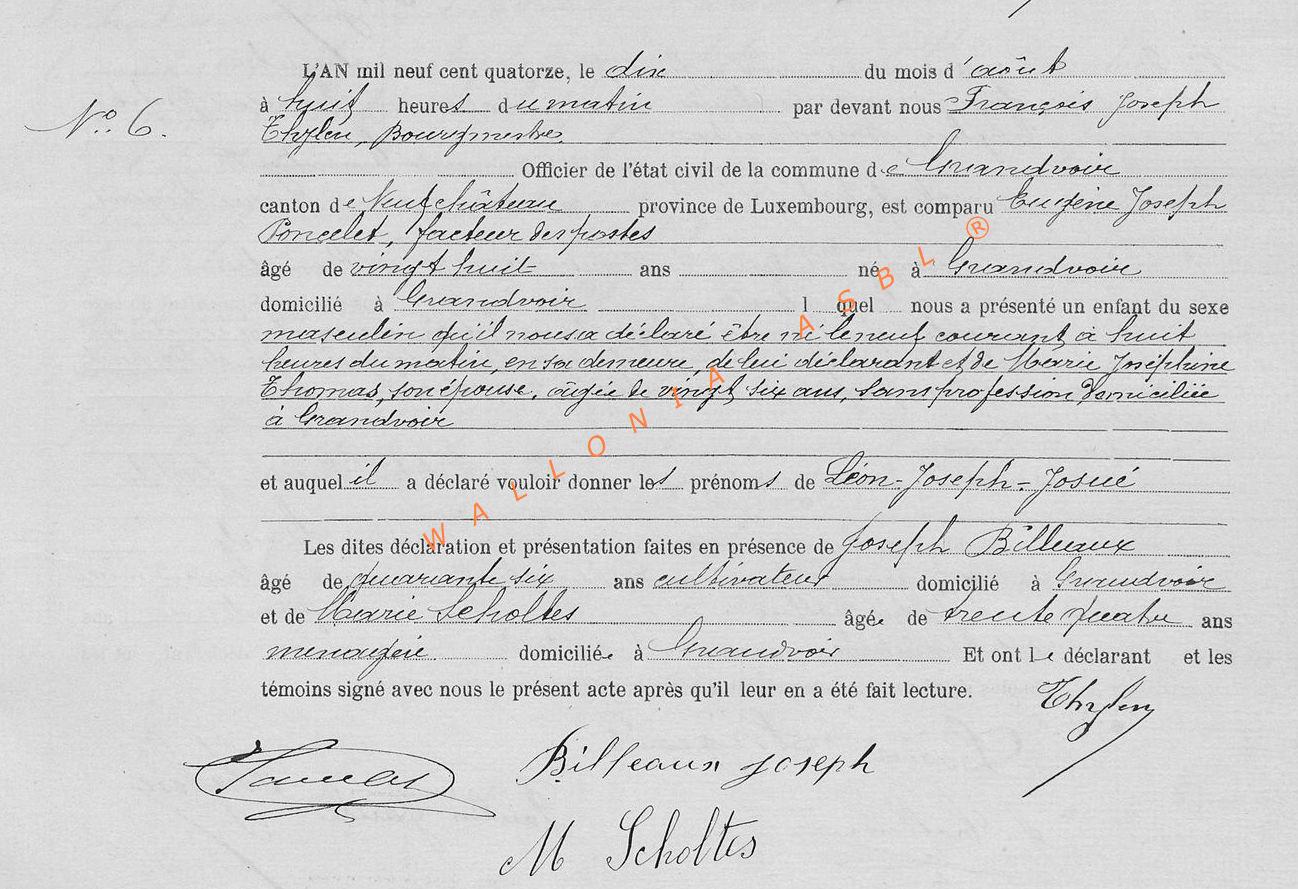 L'AN mil neuf cent quatorze, le dix du mois d'août
No. 6.
à huit heures du matin par devant nous François Joseph
Thylen, Bourgmestre,
Officier de l'état civil de la commune de Grandvoir
canton de Neufchâteau province de Luxembourg, est comparu Eugène Joseph
Poncelet, facteur des postes
âgé de vingt huit ans né à Grandvoir
domicilié à Grandvoir l quel nous a présenté un enfant du sexe
masculin qu'il nous a déclaré être né le neuf courant à huit
heures du matin, en sa demeure, de lui déclarant et de Marie Joséphine
Thomas, son épouse, âgée de vingt six ans, sans profession, domiciliée
à Grandvoir
et auquel il a déclaré vouloir donner les prénoms de Léon-Joseph-Josué
Les dites déclaration et présentation faites en présence de Joseph Billeaux
âgé de quarante six ans cultivateur domicilié à Grandvoir
et de Marie Scholtes âgée de trente quatre ans
menagère domiciliée à Grandvoir Et ont le déclarant et les
témoins signé avec nous le présent acte après qu'il leur en a été fait lecture.
Thylen
Billeaux Joseph
M Scholtes
WALLONIA ASBL ®